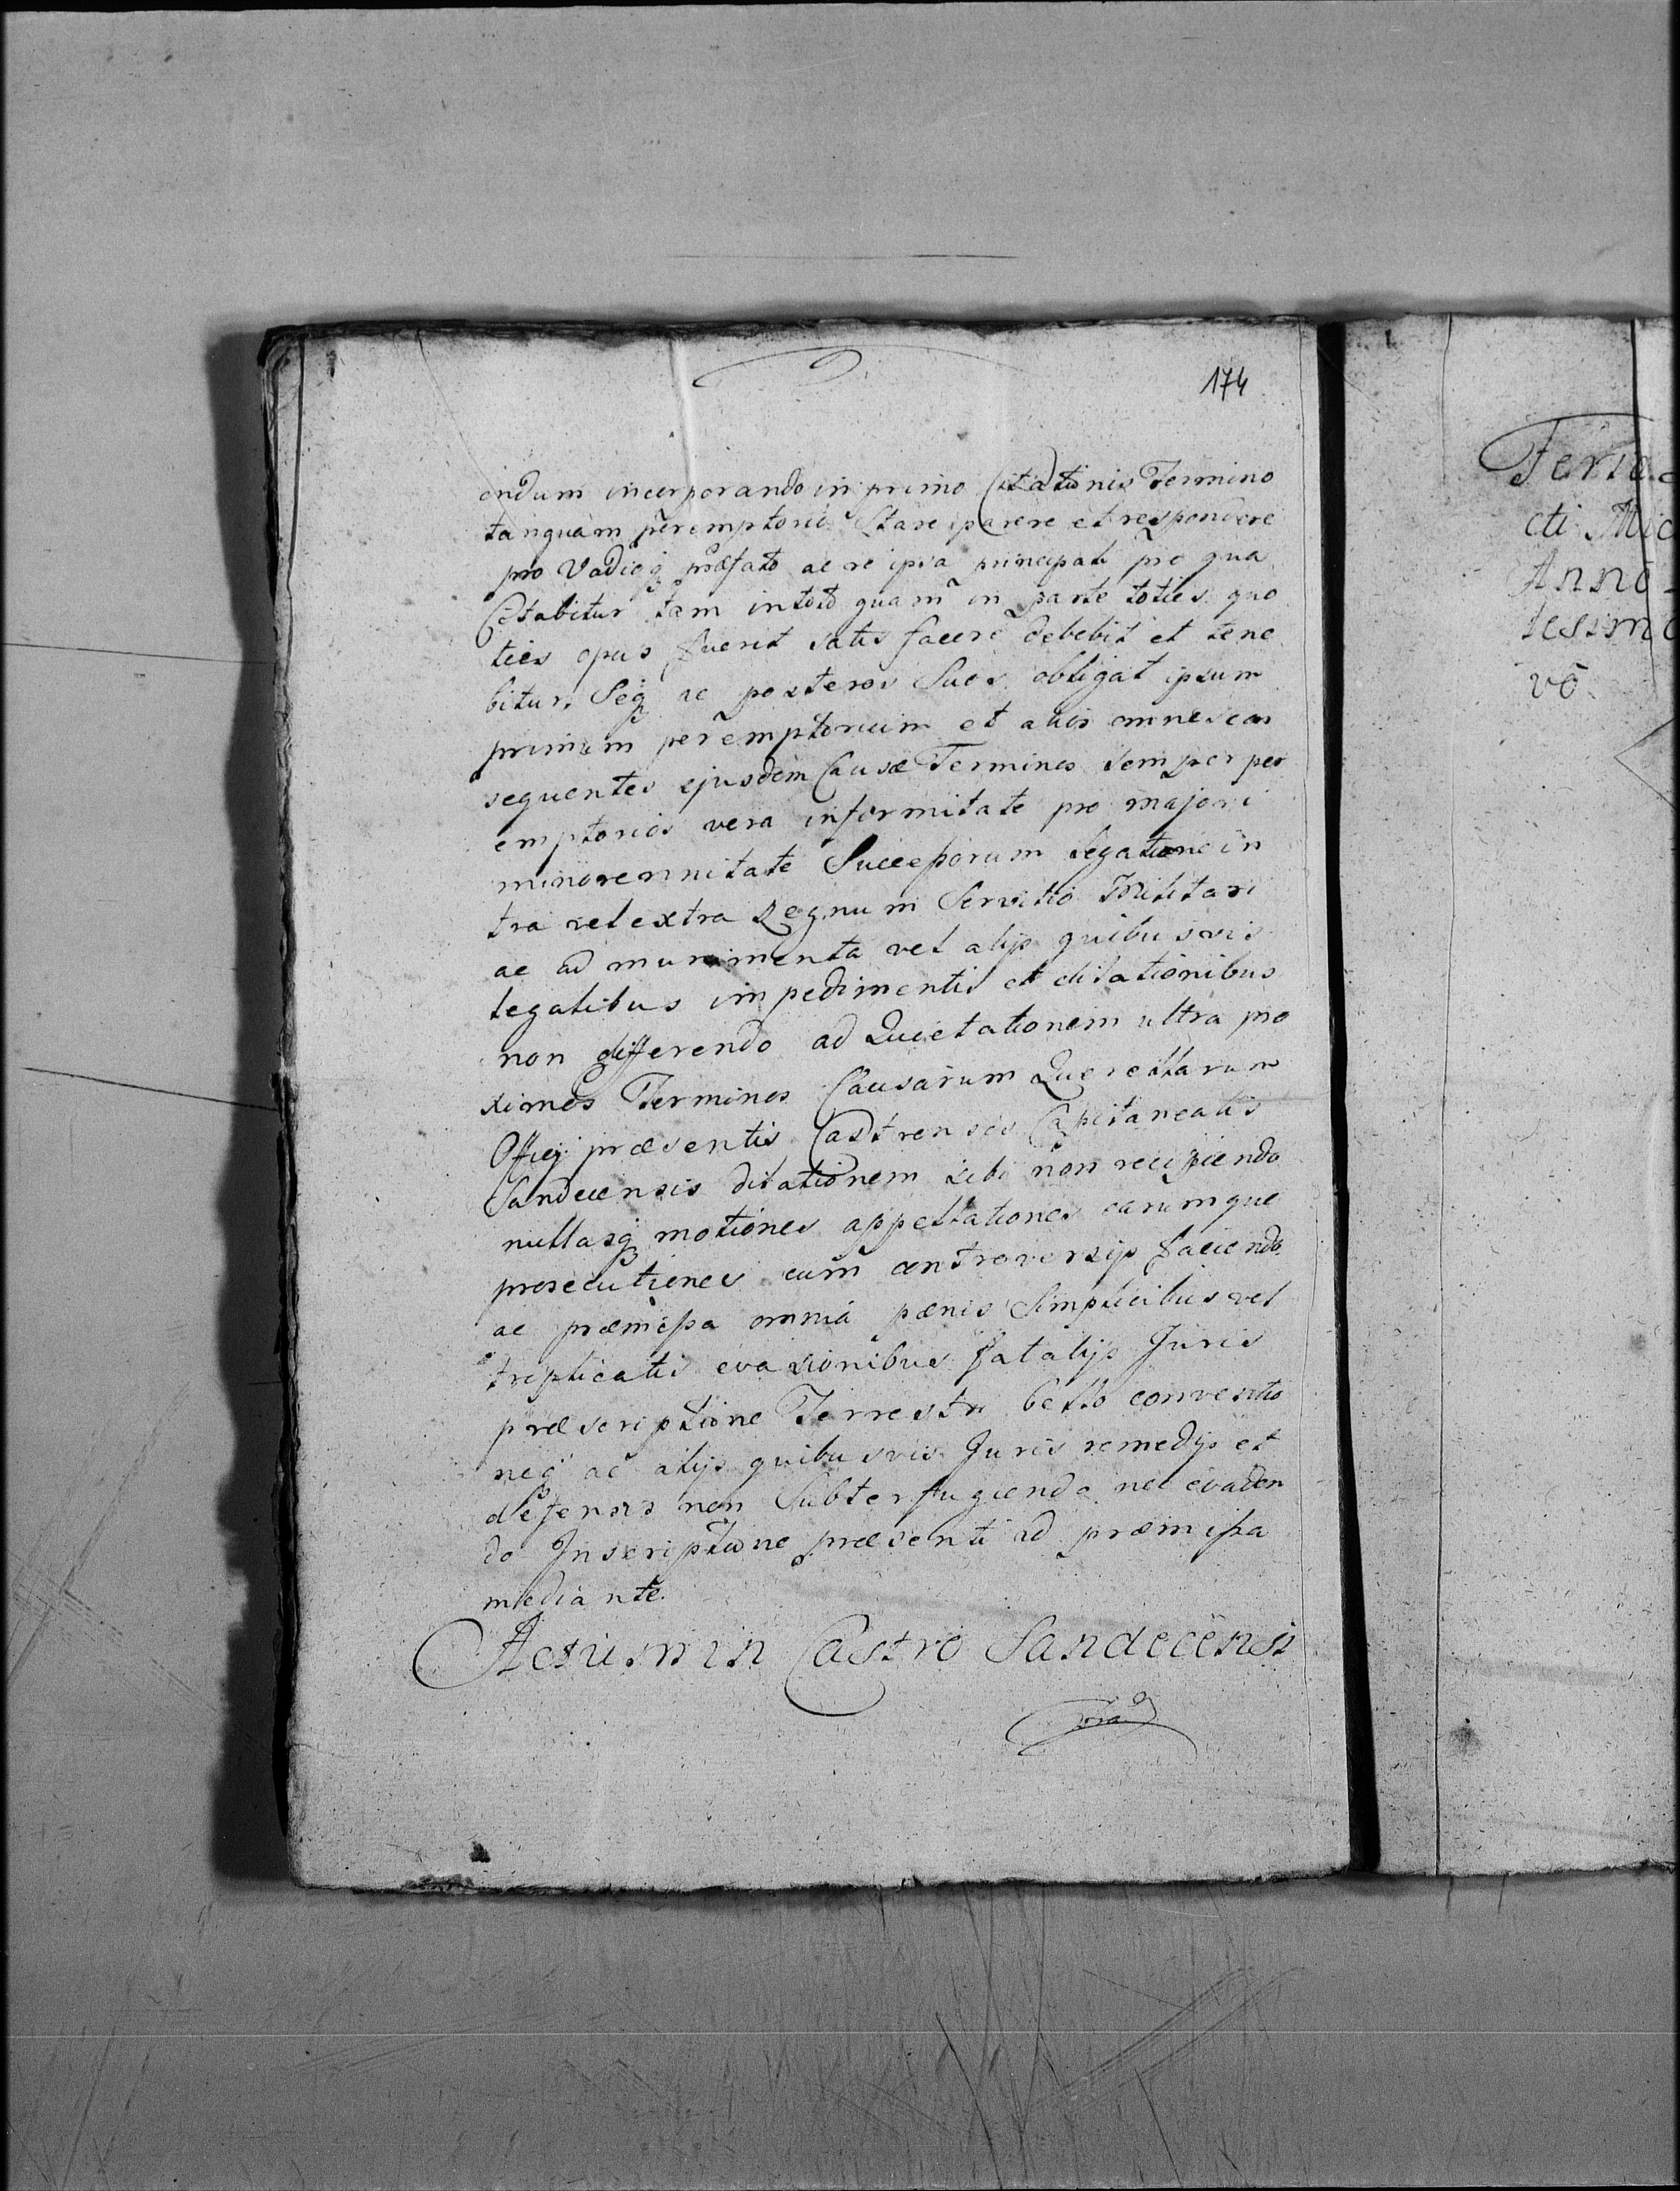 174
endum incorporando in primo Citationis Termino
tanquam peremptorio Stare parere et respondere
pro Vadioq præfato ac re ipsa principali pro qua
Citabitur tam in toto quam in parte toties quo
ties opus fuerit satis facere debebit et tene
bitur, Seq ac posteros Suos obligat ipsum
primum peremptorium et alios omnes con
sequentes ejusdem Causæ Terminos semper per
emptorios vera infirmitate pro majori
minorennitate Successorum legatione in
tra vel extra Regnum Servitio Militari
ac ad munimenta vel alijs quibusvis
legalibus impedimentis et dilationibus
non differendo ad Quietationem ultra pro
ximos Terminos Causarum Querellarum
Officij præsentis Castrensis Capitanealis
Sandecensis dilationem sibi non recipiendo
nullasq motiones appellationes earumque
prosecutiones cum controversijs faciendo
ac præmissa omnia pænis Simplicibus vel
triplicatis evasionibus fatalijs Juris
præscriptione Terrestri bello conventio
neq ac alijs quibusvis Juris remedijs et
defensis non Subterfugiendo nec evaden
do Inscriptione præsenti ad præmissa
mediante.
Actum in Castro Sandecensi
Feria
cti Mic
Anno
tesimo
vo